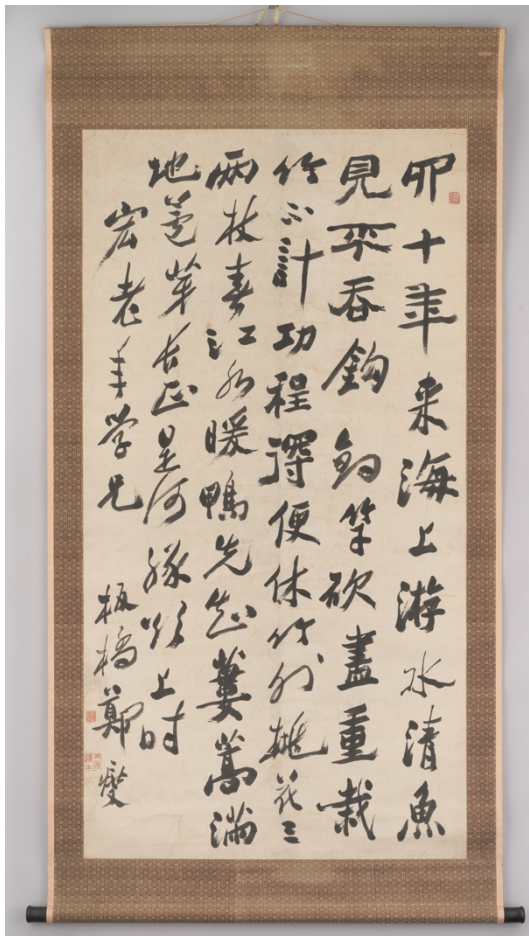 四十年来海上游水清魚
見不吞鈎釣竿砍盡重栽
竹不計功程得便休竹外桃花三
兩枝春江水暖鴨先知蔞蒿滿
地蘆芽短正是河豚欲上时
宏老年学兄
板橋鄭燮